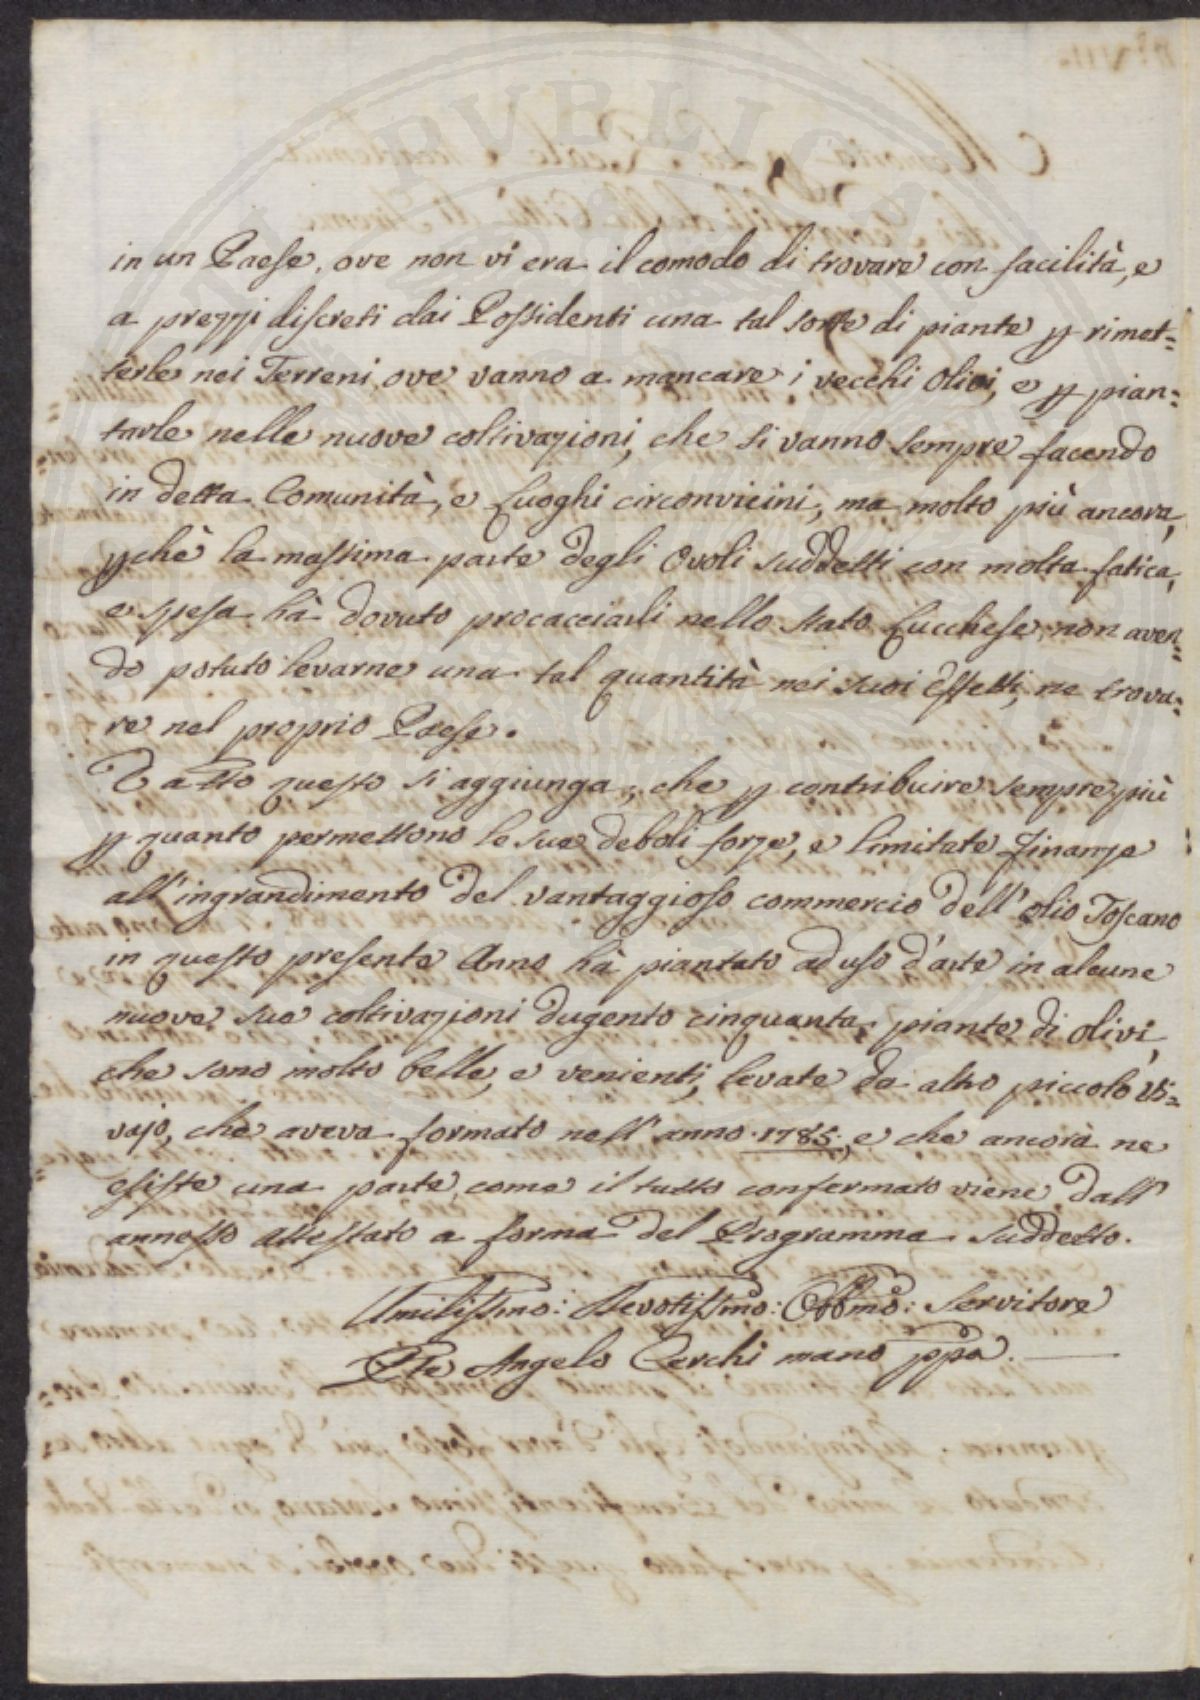 in un Paese, ove non vi era il comodo di trovare con facilità, e
a prezzi discreti dai Possidenti una tal sorte di piante p rimet=
terle nei Terreni, ove vanno a mancare i vecchi Olivi, e p pian=
tarle nelle nuove coltivazioni, che si vanno sempre facendo
in detta Comunità, e Luoghi circonvicini, ma molto più ancora,
pchè la massima parte degli Ovoli suddetti con molta fatica,
e spesa hà dovuto procacciarli nello Stato Lucchese, non aven=
do potuto levarne una tal quantità nei suoi Effetti, ne trova=
re nel proprio Paese.
E a tto questo si aggiunga, che p contribuire sempre più
p quanto permettono le sue deboli forze, e limitate Finanze
all'ingrandimento del vantaggioso commercio dell'olio Toscano
in questo presente Anno hà piantato ad uso d'arte in alcune
nuove sue coltivazioni dugento cinquanta piante di olivi,
che sono molto belle, e venienti, levate da altro piccolo Vi=
vajo, che aveva formato nell'anno 1785., e che ancora ne
esiste una parte, come il tutto confermato viene dall'
annesso Attestato a forma del Programma suddetto.
Umilissimo: Devotissmo: Obbmo: Servitore
Pte Angelo Cerchi mano ppa.